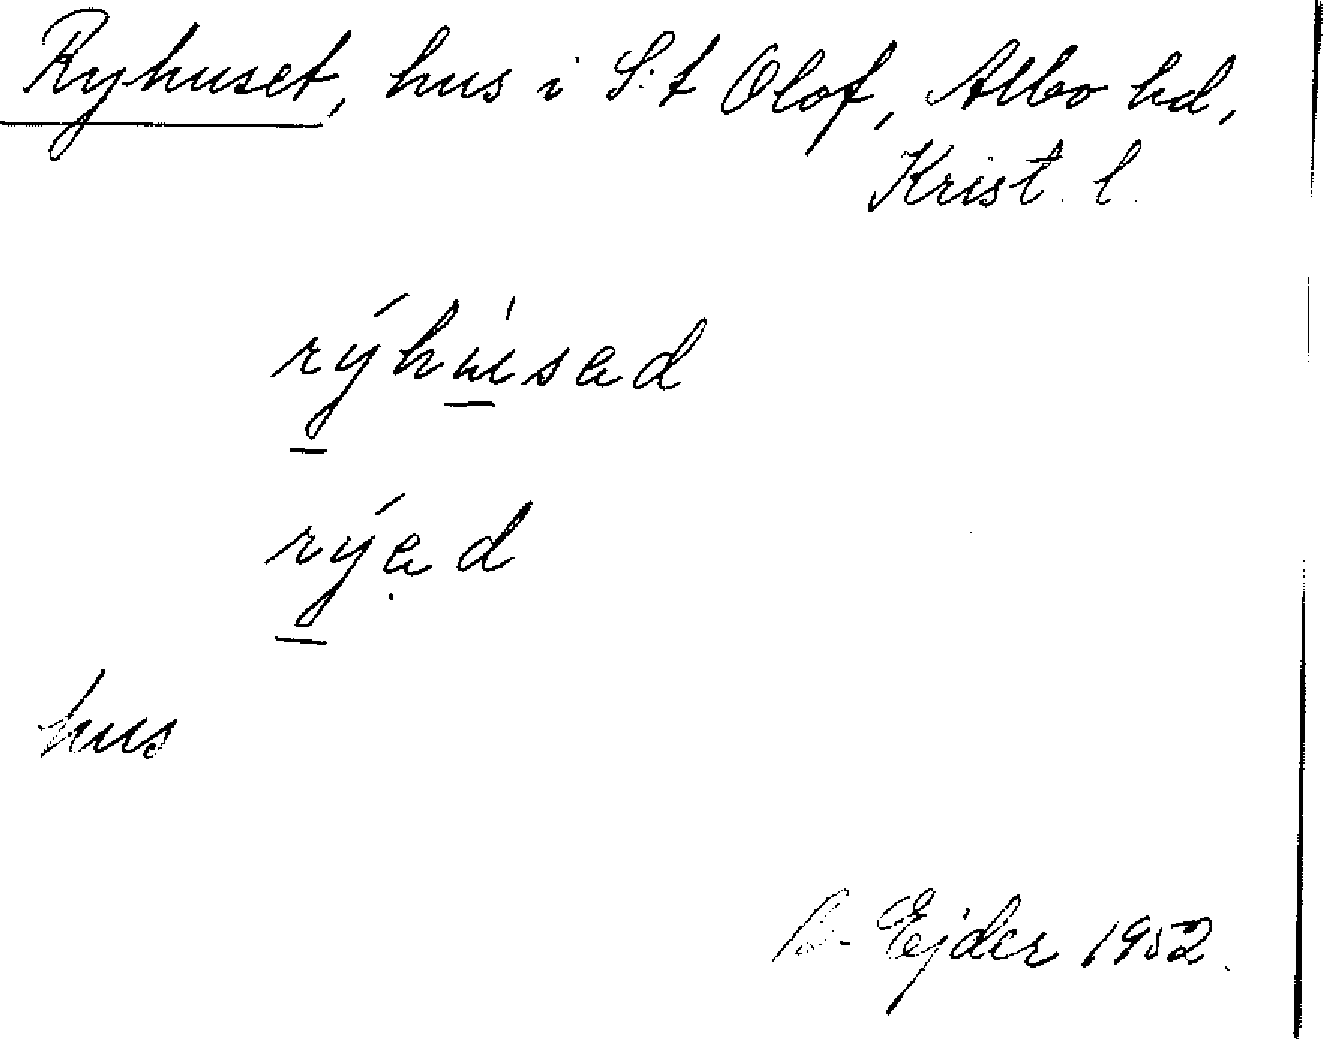 Ryhuset, hus i S:t Olof, Albo hd,
Krist. l.
rýhu̱̍sad
rýad
hus
B. Ejder 1952.